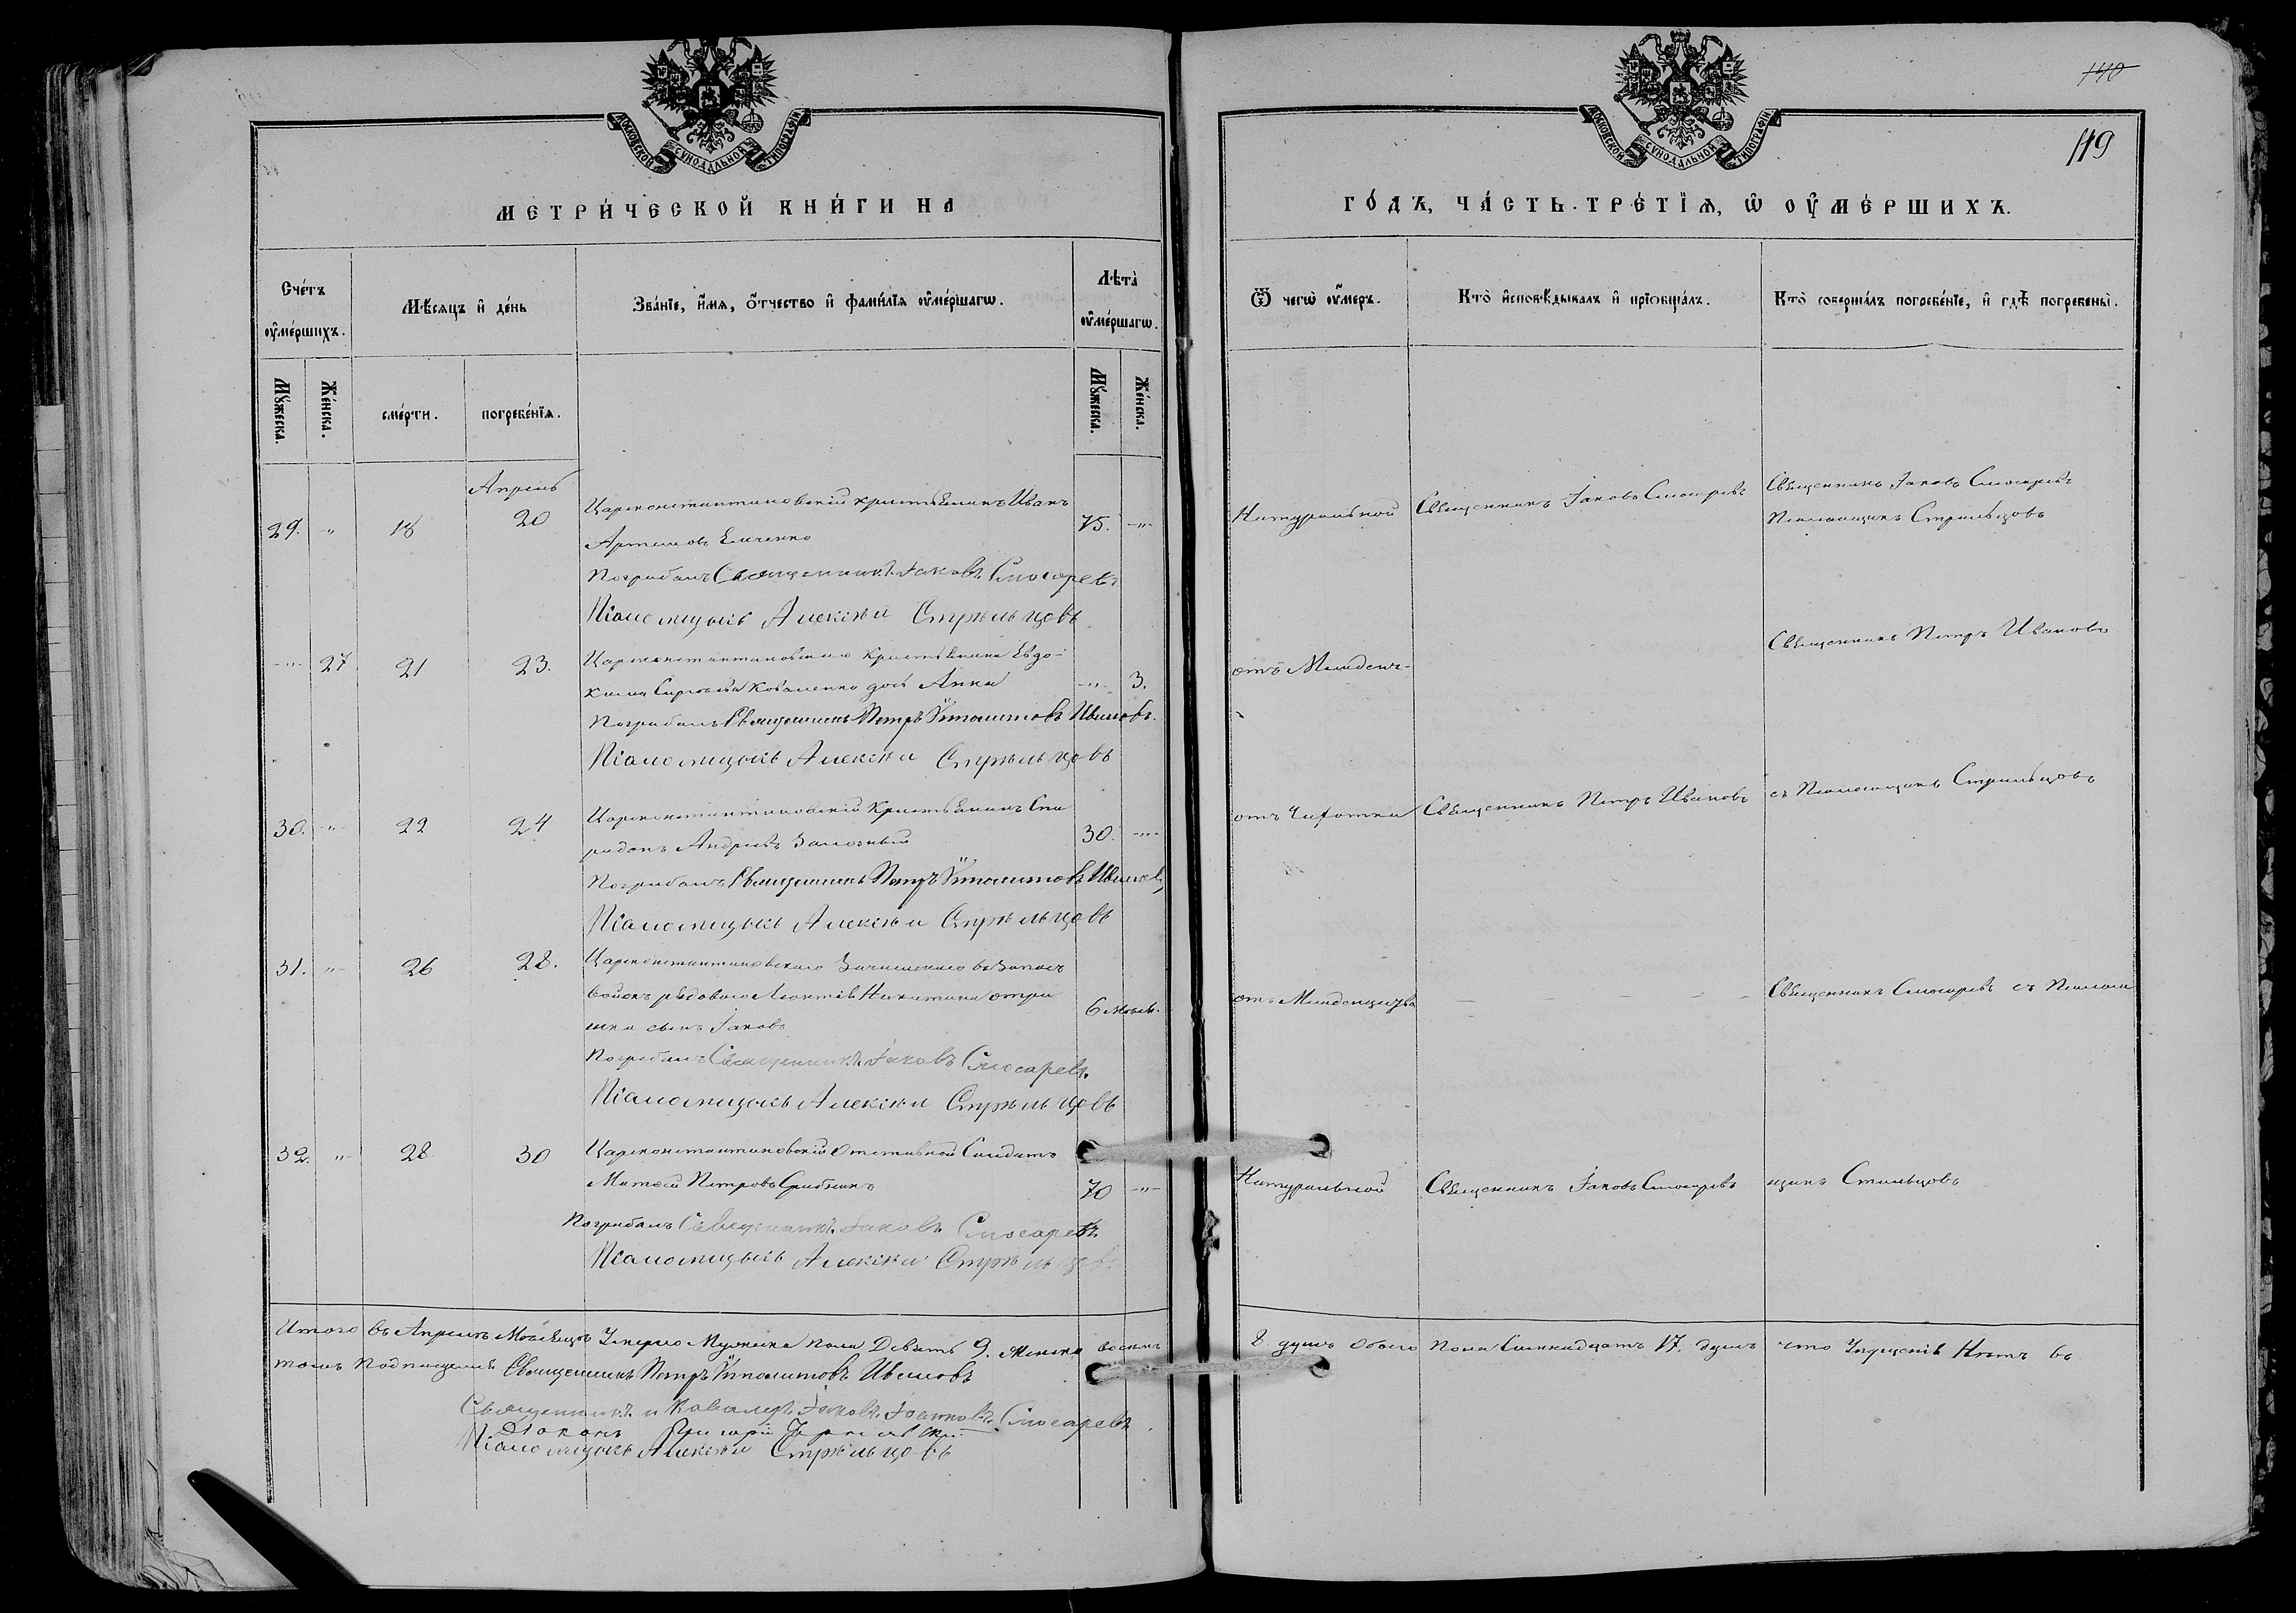 140
119
МОСКОВСКОЙ СѴНОДАЛЬНОЙ ТИПОГРАФІИ
МЕТРИ́ЧЕСКОЙ КНИ́ГИ НА
МОСКОВСКОЙ СѴНОДАЛЬНОЙ ТИПОГРАФІИ
ГО́ДЪ, ЧА́СТЬ ТРЕ́ТІѦ, Ѡ ОУ҆МЕ́РШИХЪ.
Сче́тъ
оу҆ме́ршихъ.
Мѣ́сяцъ и҆ де́нь
Зва́нїе, и҆́мя, ѻ҆́тчество и҆ фами́лїя оу҆ме́ршагѡ.
Лѣта̀
оу҆ме́ршагѡ.
Ѿ чегѡ̀ оу҆́меръ.
Кто̀ и҆сповѣ́дывалъ и҆ прїѡбща́лъ.
Кто̀ соверша́лъ погребе́нїе, и҆ гдѣ̀ погребены̀.
Мꙋ́жеска.
Же́нска.
сме́рти.
погребе́нїя.
Мꙋ́жеска.
Же́нска.
Апрель
29. „ 18 20 Цареконстантиновскій крестьянинъ Иванъ 75. „
Артемовъ Емченко
Погребалъ Священникъ Іаковъ Слюсаревъ
Псаломщикъ Алексѣй Стрѣльцовъ
Натуральной Священникъ Іаковъ Слюсаревъ Священникъ Іаковъ Слюсаревъ
Псаломщикъ Стрельцовъ
„ 27 21 23. Цареконстантиновскаго крестьянина Евдо-
кима Сергеева Коваленко дочь Анна „ 3.
Погребалъ Священникъ Петръ Ипполитовъ Ивановъ.
Псаломщикъ Алексѣй Стрѣльцовъ
отъ Младенч-
Священникъ Петръ Ивановъ
30. „ 22 24 Цареконстантиновскій Крестьянинъ Спи
ридонъ Андреевъ 30. „
Погребалъ Священникъ Петръ Ипполитовъ Ивановъ
Псаломщикъ Алексѣй Стрѣльцовъ
отъ Чахотки Священникъ Петръ Ивановъ съ Псаломщикъ Стрельцовъ
31. „ 26 28. Цареконстантиновскаго Зачисленаго въ Запасъ
войскъ рядоваго Леонтія Никитина
сынъ Іаковъ 6 мѣся.
Погребалъ Священникъ Іаковъ Слюсаревъ.
Псаломщикъ Алексѣй Стрѣльцовъ
отъ Младенчества – – – – – Священникъ Слюсаревъ съ Псалом
32. „ 28 30 Цареконстантиновскій Отставной Солдатъ
Матѳей Петровъ 70 „
Погребалъ Священникъ Іаковъ Слюсаревъ
Псаломщикъ Алексѣй Стрѣльцовъ
Натуральной Священникъ Іаковъ Слюсаревъ щикъ Стельцовъ
Итого въ Апрелѣ Мѣсяцѣ Умерло Мужеска пола Девять 9. Женска восемь 8 душъ Обоего Пола Семнадцать 17. душъ что Упущенія Нѣтъ въ
томъ Подписуемъ Священникъ Петръ Ипполитовъ Ивановъ
Священникъ и Кавалеръ Іаковъ Іоанновъ Слюсаревъ
Діаконъ Григорій
Псаломщикъ Алексѣй Стрѣльцовъ